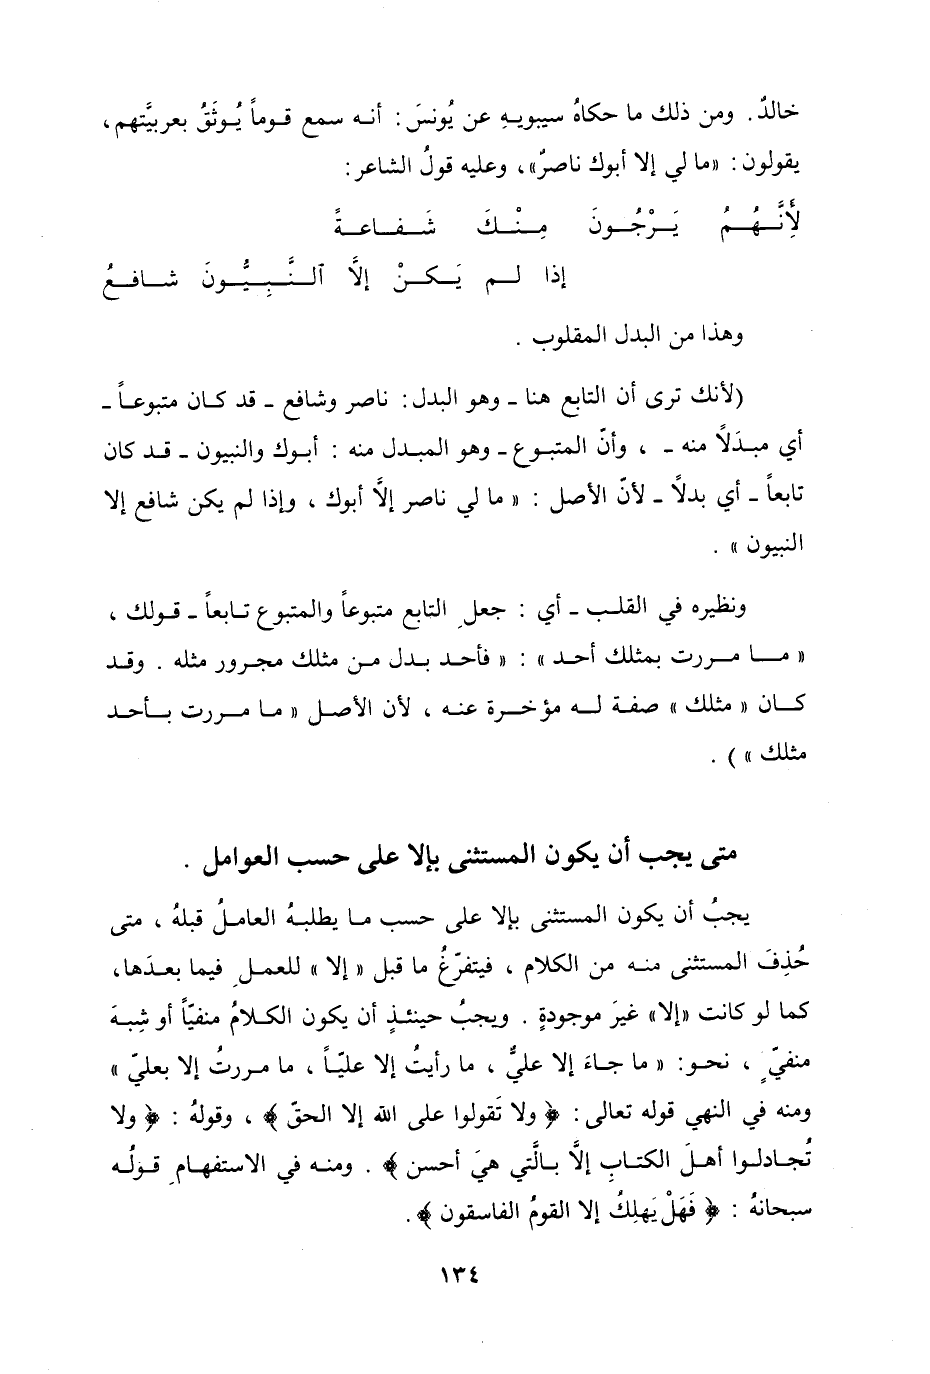 خالدٌ. ومن ذلك ما حكاهُ سيبويهِ عن يُونسَ: أنه سمع قوماً يُوثَقُ بعربيَّتهم،
يقولون: «ما لي إلا أبوك ناصرٌ»، وعليه قولُ الشاعر:
لأَنَّهُمُ يَرْجُونَ مِنْكَ شَفاعةً
إذا لم يَكنْ إلاَّ ٱلنَّبِيُّونَ شافعُ
وهذا من البدل المقلوب .
(لأنك ترى أن التابع هنا ـ وهو البدل: ناصر وشافع ـ قد كان متبوعاً ـ
أي مبدَلاً منه ـ ، وأنّ المتبوع ـ وهو المبدل منه : أبوك والنبيون ـ قد كان
تابعاً ـ أي بدلاً ـ لأنّ الأصل : « ما لي ناصر إلاَّ أبوك ، وإذا لم يكن شافع إلا
النبيون » .
ونظيره في القلب ـ أي : جعلِ التابع متبوعاً والمتبوع تابعاً ـ قولك ،
« ما مررت بمثلك أحد » : « فأحد بدل من مثلك مجرور مثله . وقد
كان « مثلك » صفة له مؤخرة عنه ، لأن الأصل « ما مررت بأحد
مثلك » ) .
متى يجب أن يكون المستثنى بإلا على حسب العوامل .
يجبُ أن يكون المستثنى بإلا على حسب ما يطلبهُ العاملُ قبلهُ ، متى
حُذِفَ المستثنى منه من الكلام ، فيتفرّغُ ما قبل « إلا » للعملِ فيما بعدَها،
كما لو كانت «إلا» غيرَ موجودةٍ . ويجبُ حينئذٍ أن يكون الكلامُ منفيّاً أو شِبهَ
منفيٍّ ، نحو: « ما جاءَ إلا عليٌّ ، ما رأيتُ إلا عليّاً ، ما مررتُ إلا بعليّ »
ومنه في النهي قوله تعالى: ﴿ ولا تَقولوا على الله إلا الحقّ ﴾ ، وقولهُ : ﴿ ولا
تُجادلوا أهلَ الكتابِ إلاَّ بالَّتي هيَ أحسن ﴾ . ومنه في الاستفهامِ قولُه
سبحانهُ : ﴿ فَهَلْ يَهلِكُ إلا القومُ الفاسقون ﴾ .
١٣٤